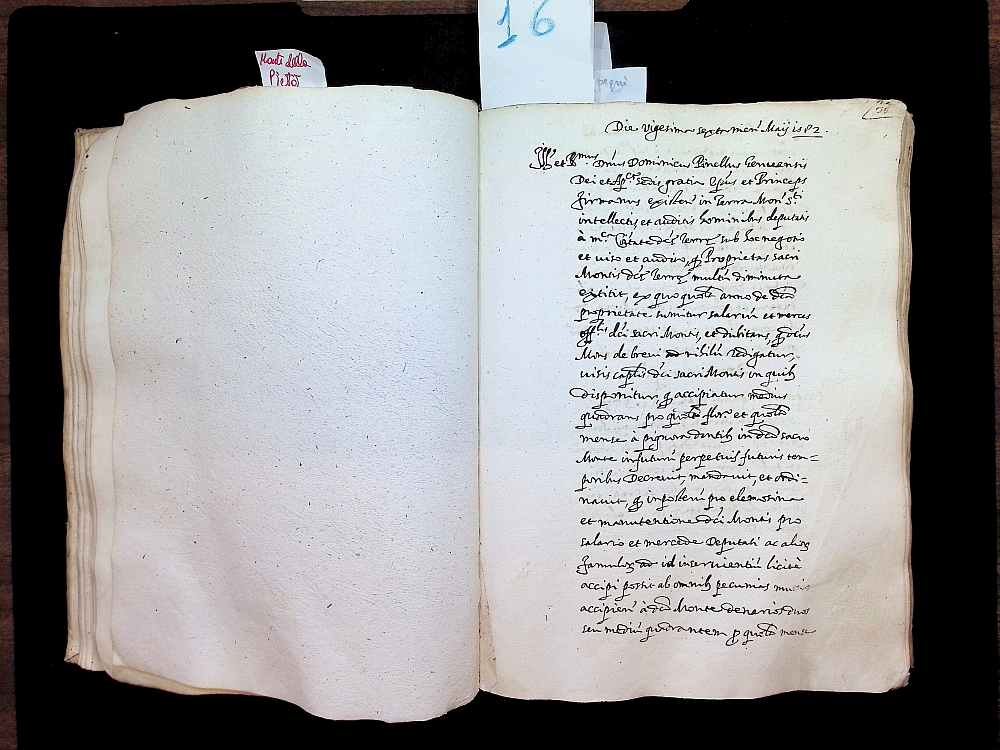 Monte della
Pietà
16
35
Die vigesima sexta men. Maij 1582.
Ill. et R.mus Dnus Dominicus Pinellus Genuensis
Dei et Ap.ce sedis gratia Epus et Princeps
firmanus existen. in Terra Mon. S.ti
intellectis, et auditis hominibus deputatis
à m.ca Cõitate dcẽ Terre sub hoc negotio
et viso et audito, q̃ Proprietas sacri
Montis dcẽ Terre multũ diminuta
extitit, ex quo quolt anno de dcã
proprietate sumitur salariũ et merces
offi.lis dci sacri Montis, et dubitans, q̃ dcũs
Mons de brevi ad nihilũ redigatur,
visis captis dci sacri Montis in quib
disponitur, q̃ accipiatur medius
quadrans pro quolt flor. et quolt
mense à pignorantib in dcõ sacro
Monte in futurũ perpetuis futuris tem=
poribus Decrevit, mandavit, et ordi=
navit, q̃ in posterũ pro elemosina
et manutentione dci Montis pro
salario et mercede Deputati ac alior
famulor ad id inservientiũ licitè
accipi possit ab omnib pecunias mutuo
accipien. à dcõ Monte denarios duos
seu mediũ quadrantem p quolt mense